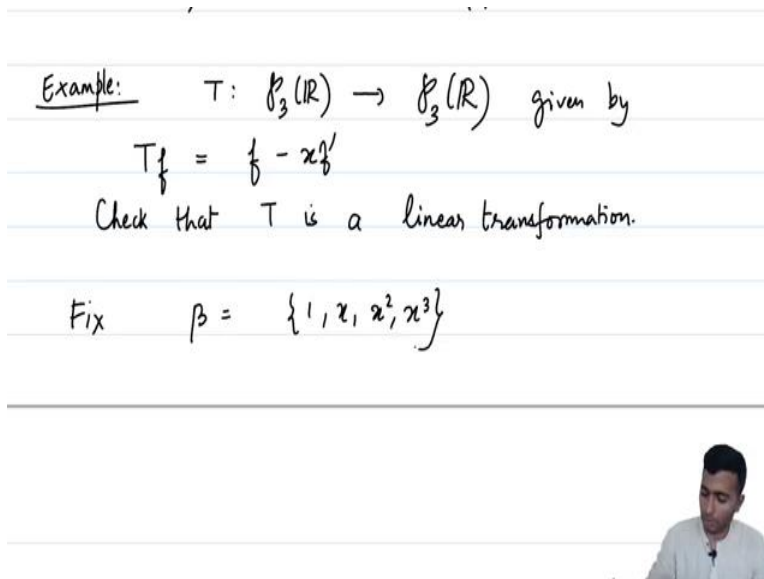 Example: T: P₃(ℝ) → P₃(ℝ) given by
Tf = f - xf'
Check that T is a linear transformation.
Fix β = {1, x, x², x³}